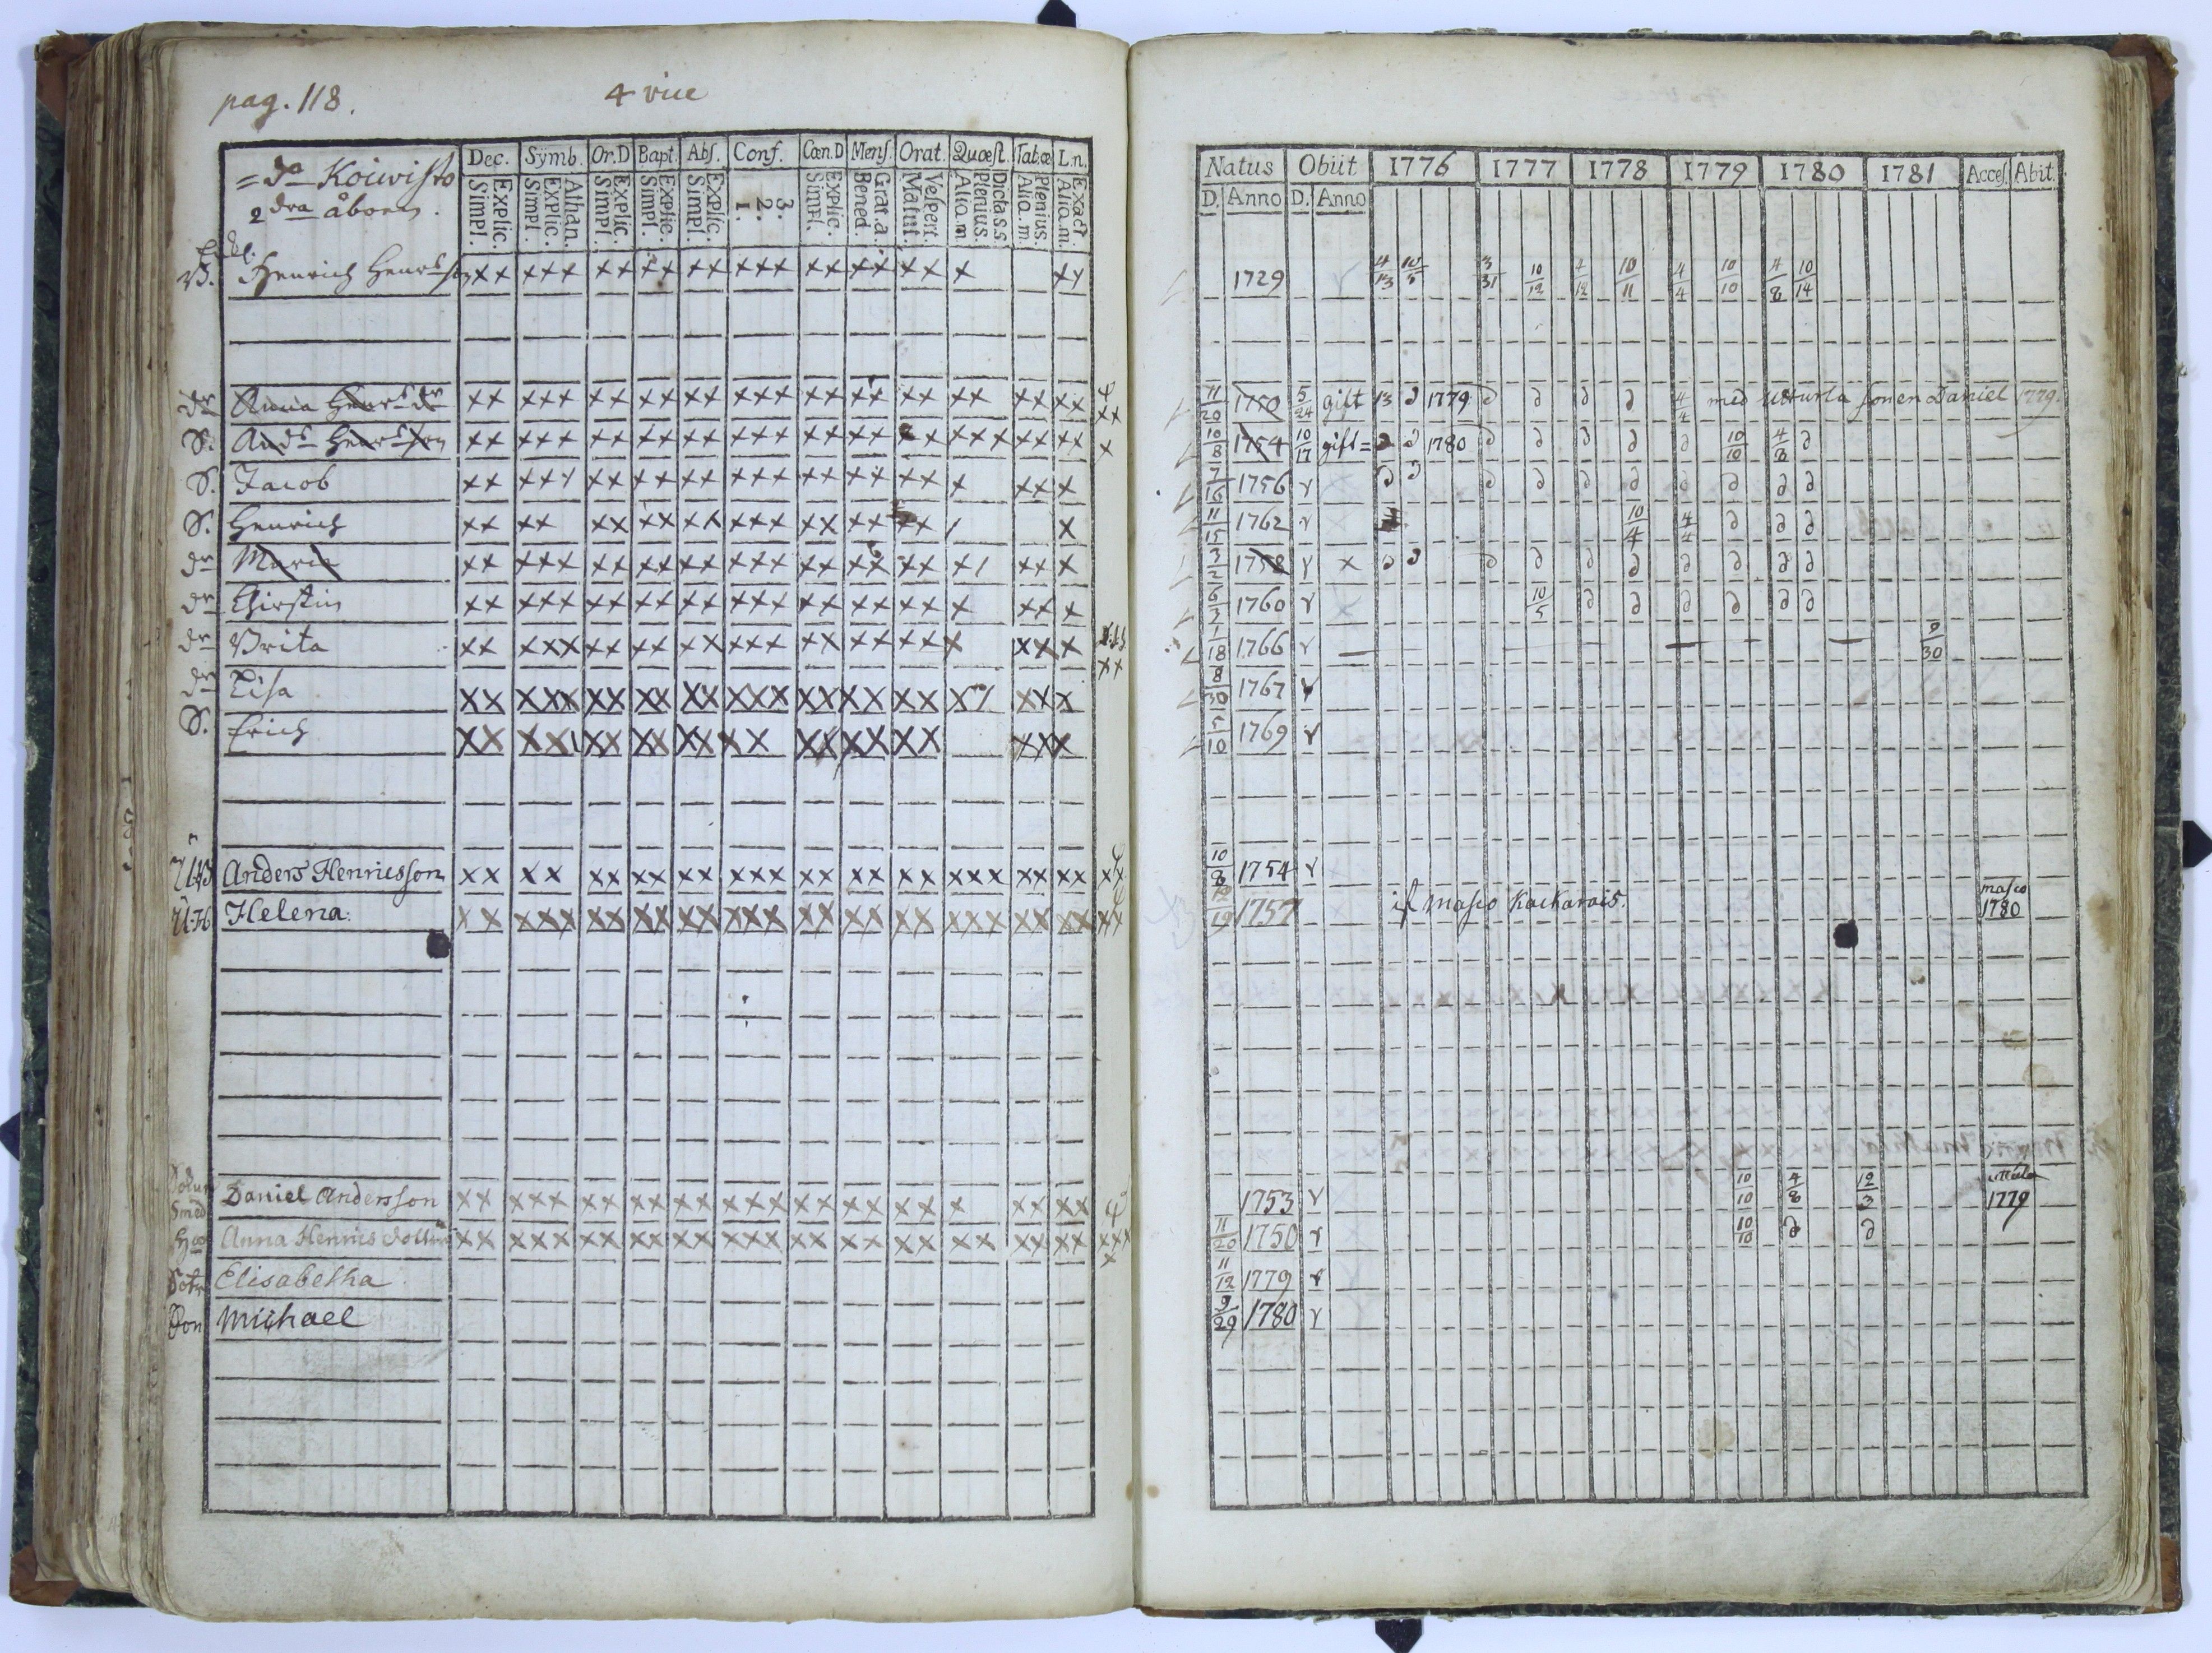 pag. 118. 4 vice
=da Koiwisto
2 dra åboen.
Dec. Symb. Or.D Bapt. Abs. Conf. Cæn.D Mens. Orat. Quæst. Tab.œ L.n.
Simpl. Explic. Simpl. Explic. Athan. Simpl. Explic. Simpl. Explic. Simpl. Explic. 1. 2. 3. Simpl. Explic. Bened. Grat. a. Matut. Vespert. Alio. m. Plenius. Dicta s.s. Alio. m. Plenius. Alio. m. Exact.
B. Henrich Henrsson xx xxx xx xx xx xxx xx xx xx x xx
dr Anna Henrs dr xx xxx xx xx xx xxx xx xx xx xx xx xx
S. Ands Henrsson xx xxx xx xx xx xxx xx xx xx xxx xx xx x
S. Jacob xx xxx xx xx xx xxx xx xx xx x xx x
S. Henrich xx xx xx xx xx xxx xx xx xx / x
dr Maria xx xxx xx xx xx xxx xx xx xx x/ xx x
dr Chirstin xx xxx xx xx xx xxx xx xx xx x xx x
dr Brita xx xxx xx xx xx xxx xx xx xx x xx x
dr Lisa xx xxx xx xx xx xxx xx xx xx x/ xx x
S. Erich xx xx xx xx xx xx xx xx xx x
Anders Henricsson xx xx xx xx xx xxx xx xx xx xxx xx xx
Helena. xx xxx xx xx xx xxx xx xx xx xxx xx xx
Smed Daniel Andersson xx xxx xx xx xx xxx xx xx xx x xx xx
Anna Henrics dotter xx xxx xx xx xx xxx xx xx xx xx xx xx
Dotr Elisabetha
Son Michael
Natus Obiit 1776 1777 1778 1779 1780 1781 Acces. Abit.
D. Anno D. Anno
1729 4/13 10/5 3/31 10/12 4/12 10/11 4/4 10/10 4/8 10/14
11/20 1750 5/24 gift 13 ∂ 1779 ∂ ∂ ∂ ∂ 4/4 med Utturla sonen Daniel 1779.
10/8 1754 10/17 gift= ∂ ∂ 1780 ∂ ∂ ∂ ∂ ∂ 10/10 4/8 ∂
7/16 1756 v ∂ ∂ ∂ ∂ ∂ ∂ ∂ ∂ ∂ ∂
11/15 1762 v 10/4 4/4 ∂ ∂ ∂
3/2 1758 v x ∂ ∂ ∂ ∂ ∂ ∂ ∂ ∂ ∂ ∂
6/3 1760 v 10/5 ∂ ∂ ∂ ∂ ∂ ∂
1/18 1766 v 9/30
8/30 1767 v
5/10 1769 v
10/8 1754 v
12/19 1757 if masco Kackarais. masco 1780
1753 v 10/10 4/8 12/3 1779
11/20 1750 v 10/10 ∂ ∂
11/12 1779 v
9/29 1780 v